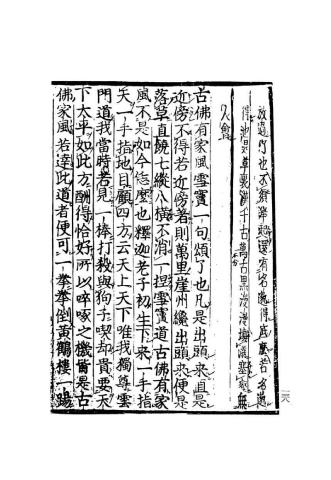 放過了也不須舉起還有名邈得底麼若名邈
得也是草裏漢千古萬古黑漫漫填溝塞壑無
人會
古佛有家風雪竇一句頌了也凡是出頭來直是
近傍不得若近傍著則萬里崖州纔出頭來便是
落草直饒七縱八橫不消一捏雪竇道古佛有家
風不是如今怎麼也釋迦老子初生下來一手指
天一手指地目顧四方云天上天下唯我獨尊雲
門道我當時若見一棒打殺與狗子喫却貴要天
下太平如此方酬得恰好所以啐啄之機皆是古
佛家風若達此道者便可一拳拳倒黃鶴樓一踢